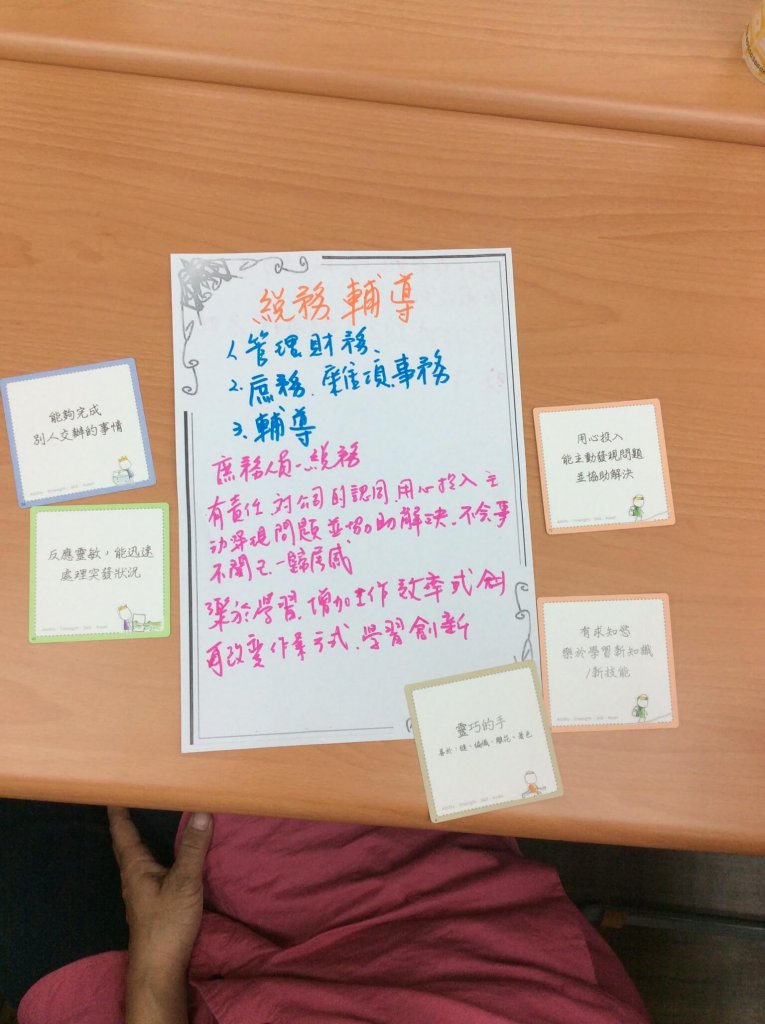 総務輔導
1、管理財務、
2、庶務、雜項事務
3、輔導
庶務人員-総務
有責任、対公司的認同、用心投入主
动発現問題並協助解決、不会事
不関己-歸属感
樂於學習、增加工作效率或創
再改變作業方式、學習創新
能夠完成
別人交辦的事情
反應靈敏，能迅速
處理突發狀況
用心投入
能主動發現問題
並協助解決
有求知慾
樂於學習新知識
/新技能
靈巧的手
善於：縫、編織、雕花、著色